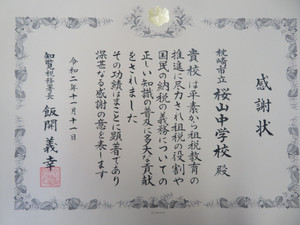 感謝状
枕崎市立 桜山中学校 殿
貴校は平素から租税教育の
推進に尽力され租税の役割や
国民の納税の義務についての
正しい知識の普及に多大な貢献
をされました
その功績はまことに顕著であり
深甚なる感謝の意を表します
令和二年十一月十一日
知覧税務署長 飯開義幸